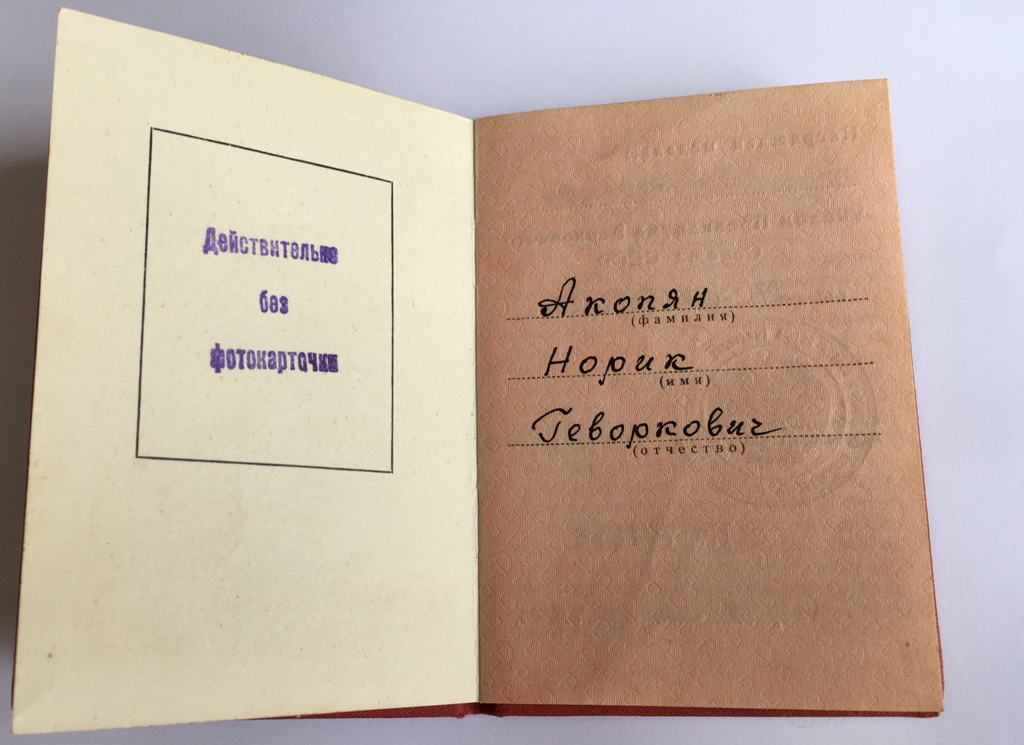 Действительно
без
фотокарточки
Акопян
(фамилия)
Норик
(имя)
Геворкович
(отчество)